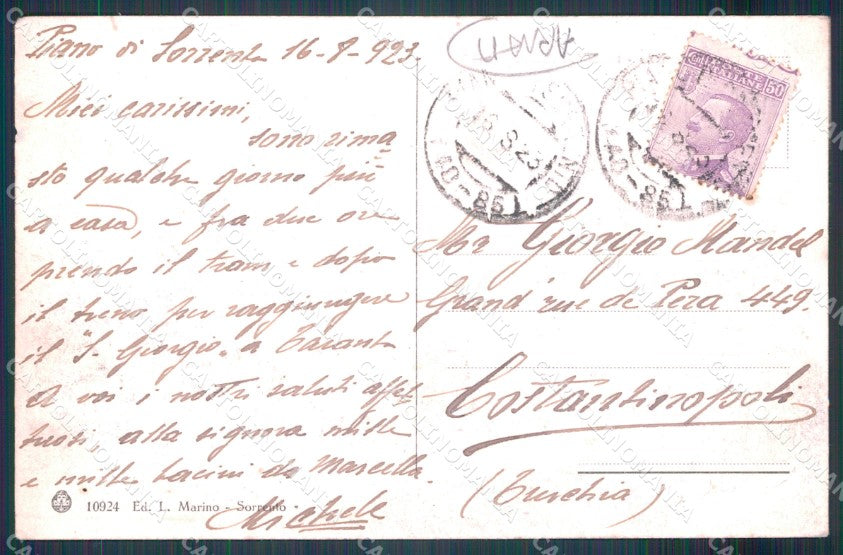 Piano di Sorrento 16-8-923.
Miei carissimi,
sono rima
sto qualche giorno più
a casa, e fra due ore
prendo il tram, e dopo
il treno per raggiungere
il "S. Giorgio" a Taranto
A voi i nostri saluti affet
tuosi, alla signora mille
e mille bacini da Marcella.
Michele
10924 Ed. L. Marino - Sorrento
POSTE ITALIANE
50
Mr Giorgio Mandel
Grand'rue de Pera 449.
Costantinopoli
(Turchia)
CARTOLINOMANIA